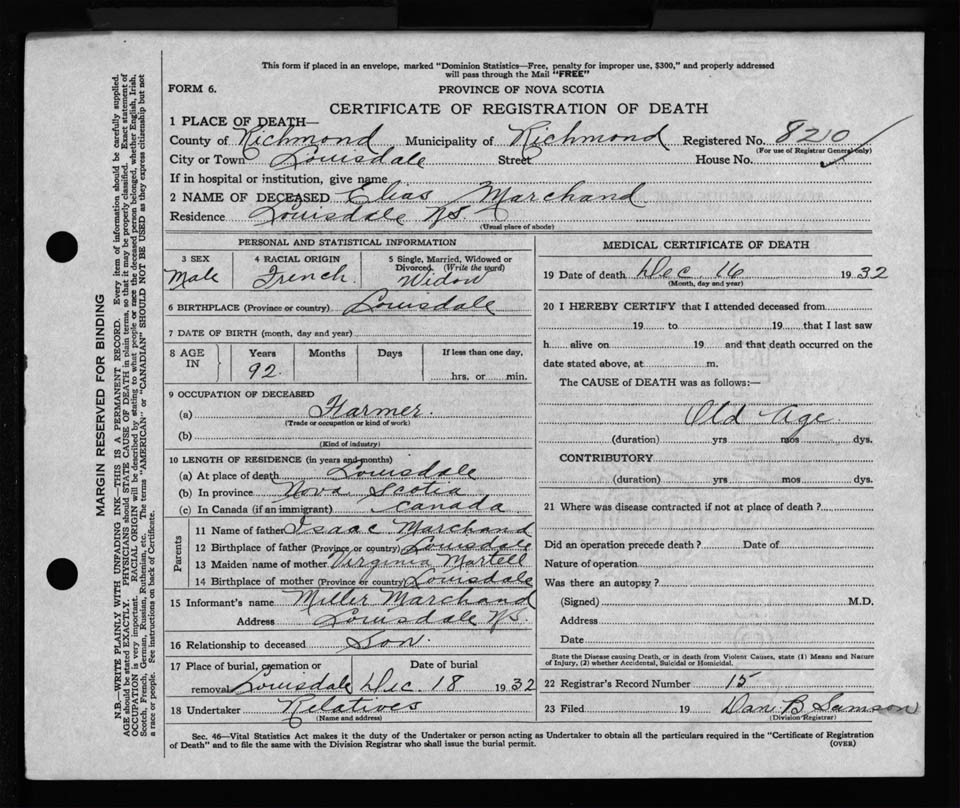 This form if placed in an envelope, marked "Dominion Statistics—Free, penalty for improper use, $300," and properly addressed
will pass through the Mail "FREE"
FORM 6.
PROVINCE OF NOVA SCOTIA
CERTIFICATE OF REGISTRATION OF DEATH
1 PLACE OF DEATH—
County of Richmond Municipality of Richmond Registered No. 8210
(For use of Registrar General only)
City or Town Louisdale Street House No.
If in hospital or institution, give name
2 NAME OF DECEASED Elias Marchand
Residence Louisdale N.S.
(Usual place of abode)
PERSONAL AND STATISTICAL INFORMATION
3 SEX 4 RACIAL ORIGIN 5 Single, Married, Widowed or
Divorced. (Write the word)
Male French. Widow
6 BIRTHPLACE (Province or country) Louisdale
7 DATE OF BIRTH (month, day and year)
8 AGE IN Years Months Days If less than one day,
92. hrs. or min.
9 OCCUPATION OF DECEASED
(a) Farmer.
(Trade or occupation or kind of work)
(b)
(Kind of industry)
10 LENGTH OF RESIDENCE (in years and months)
(a) At place of death Louisdale
(b) In province Nova Scotia
(c) In Canada (if an immigrant) Canada
Parents
11 Name of father Isaac Marchand
12 Birthplace of father (Province or country) Louisdale
13 Maiden name of mother Virginia Martell
14 Birthplace of mother (Province or country) Louisdale
15 Informant's name Miller Marchand
Address Louisdale N.S.
16 Relationship to deceased Son.
17 Place of burial, cremation or Date of burial
removal Louisdale Dec 18 1932
18 Undertaker Relatives
(Name and address)
MEDICAL CERTIFICATE OF DEATH
19 Date of death Dec 16 1932
(Month, day and year)
20 I HEREBY CERTIFY that I attended deceased from
19 to 19 that I last saw
h alive on 19 and that death occurred on the
date stated above, at m.
The CAUSE of DEATH was as follows:—
Old Age
(duration) yrs mos dys.
CONTRIBUTORY
(duration) yrs mos dys.
21 Where was disease contracted if not at place of death?
Did an operation precede death? Date of
Nature of operation
Was there an autopsy?
(Signed) M.D.
Address
Date
State the Disease causing Death, or in death from Violent Causes, state (1) Means and Nature
of Injury, (2) whether Accidental, Suicidal or Homicidal.
22 Registrar's Record Number 15
23 Filed 19 Dan B Samson
(Division Registrar)
Sec. 46—Vital Statistics Act makes it the duty of the Undertaker or person acting as Undertaker to obtain all the particulars required in the "Certificate of Registration
of Death" and to file the same with the Division Registrar who shall issue the burial permit. (OVER)
MARGIN RESERVED FOR BINDING
N.B. WRITE PLAINLY WITH UNFADING INK—THIS IS A PERMANENT RECORD. Every item of information should be carefully supplied.
AGE should be stated EXACTLY. PHYSICIANS should STATE CAUSE OF DEATH in plain terms, so that it may be properly classified. Exact statement of
OCCUPATION is very important. RACIAL ORIGIN will be described by stating to what people or race the deceased person belonged, whether English, Irish,
Scotch, French, German, Russian, Ruthenian, etc. The terms "AMERICAN" or "CANADIAN" SHOULD NOT BE USED as they express citizenship but not
a race or people. See instructions on back of Certificate.